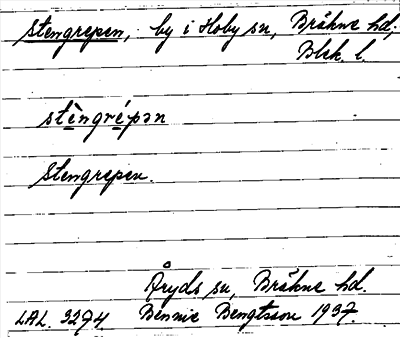 Stengrepen, by i Hoby sn, Bräkne hd;
Blek. l.
stèngrépən
Stengrepen.
Åryds sn, Bräkne hd.
LAL. 3274. Bennie Bengtsson 1937.